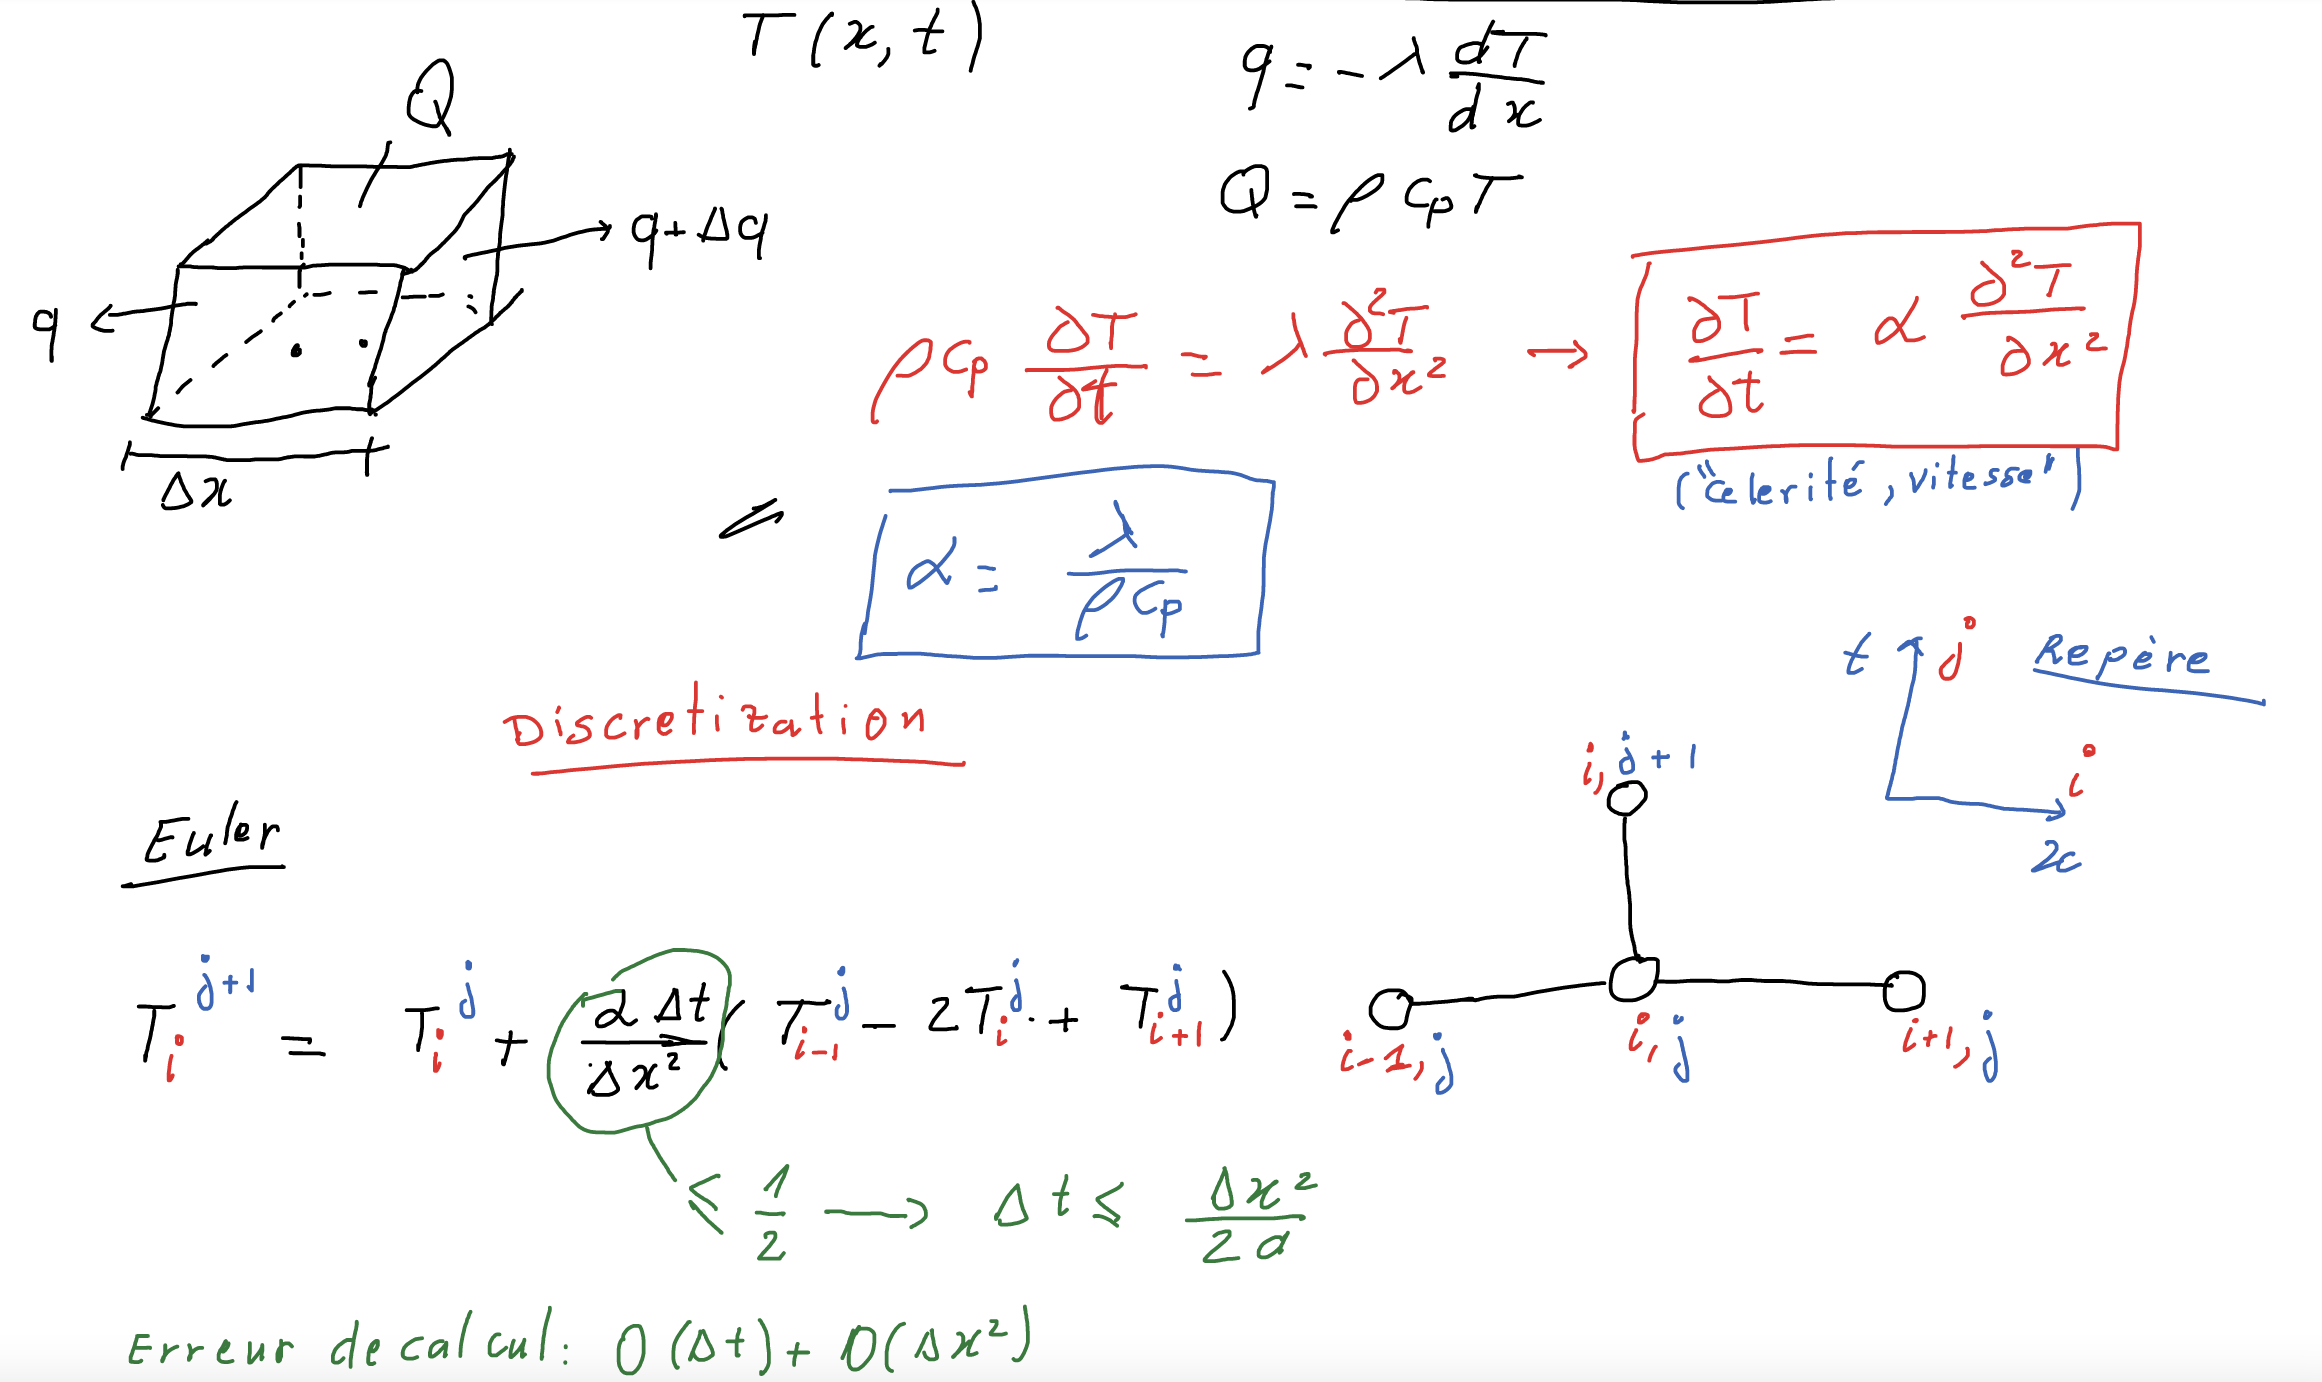 T(x,t)
q = -λ dT/dx
Q
Q = ρ Cp T
q+Δq
q
Δx
ρ Cp ∂T/∂t = λ ∂²T/∂x² → ∂T/∂t = α ∂²T/∂x²
("célerité, vitesse")
α = λ/(ρ Cp)
t j Repère
i
x
Discretization
Euler
i, j+1
T_i^{j+1} = T_i^j + αΔt/Δx² (T_{i-1}^j - 2T_i^j + T_{i+1}^j)
i-1, j i, j i+1, j
≤ 1/2 → Δt ≤ Δx²/2α
Erreur de calcul: O(Δt) + O(Δx²)